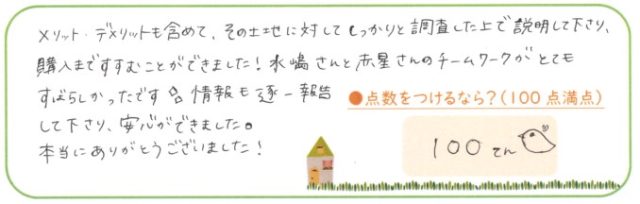 メリット・デメリットも含めて、その土地に対してしっかりと調査した上で説明して下さり、
購入まですすむことができました！水嶋さんと赤星さんのチームワークがとても
すばらしかったです 情報も逐一報告
して下さり、安心ができました。
本当にありがとうございました！
●点数をつけるなら？(100点満点)
100てん